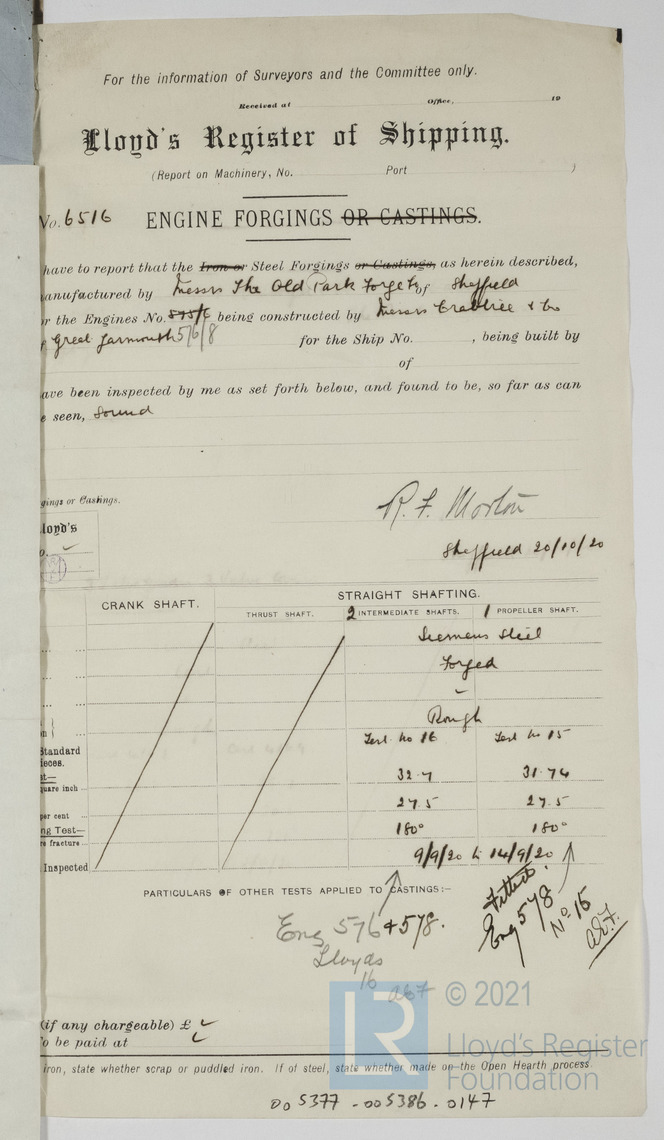 For the information of Surveyors and the Committee only.
Received at Office, 19
Lloyd's Register of Shipping.
(Report on Machinery, No. Port )
No. 6516 ENGINE FORGINGS OR CASTINGS.
have to report that the Iron or Steel Forgings or Castings, as herein described,
anufactured by Messrs The Old Park Forge Ltd of Sheffield
r the Engines No. 575/6 being constructed by Messrs Crabtree & Co
Great Yarmouth 576/8 for the Ship No. , being built by
of
ave been inspected by me as set forth below, and found to be, so far as can
e seen, Sound
gings or Castings.
R. F. Morton
loyd's
o.
Sheffield 20/10/20
CRANK SHAFT. STRAIGHT SHAFTING.
THRUST SHAFT. 2 INTERMEDIATE SHAFTS. 1 PROPELLER SHAFT.
Siemens Steel
Forged
Rough
n
Test No 16 Test No 15
Standard
ieces.
st—
32.7 31.74
quare inch
27.5 27.5
per cent
ng Test— 180° 180°
re fracture
Inspected 9/9/20 to 14/9/20
PARTICULARS OF OTHER TESTS APPLIED TO CASTINGS:—
Eng 576 & 578.
Lloyds
16
Fitted.
Eng 578
No 15
(if any chargeable) £
o be paid at
iron, state whether scrap or puddled iron. If of steel, state whether made on the Open Hearth process.
LR © 2021
Lloyd's Register
Foundation
005377-005386-0147